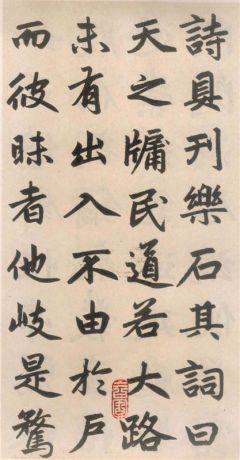 詩具刊樂石其詞曰
天之牗民道若大路
未有出入不由於戶
而彼昧者他歧是騖